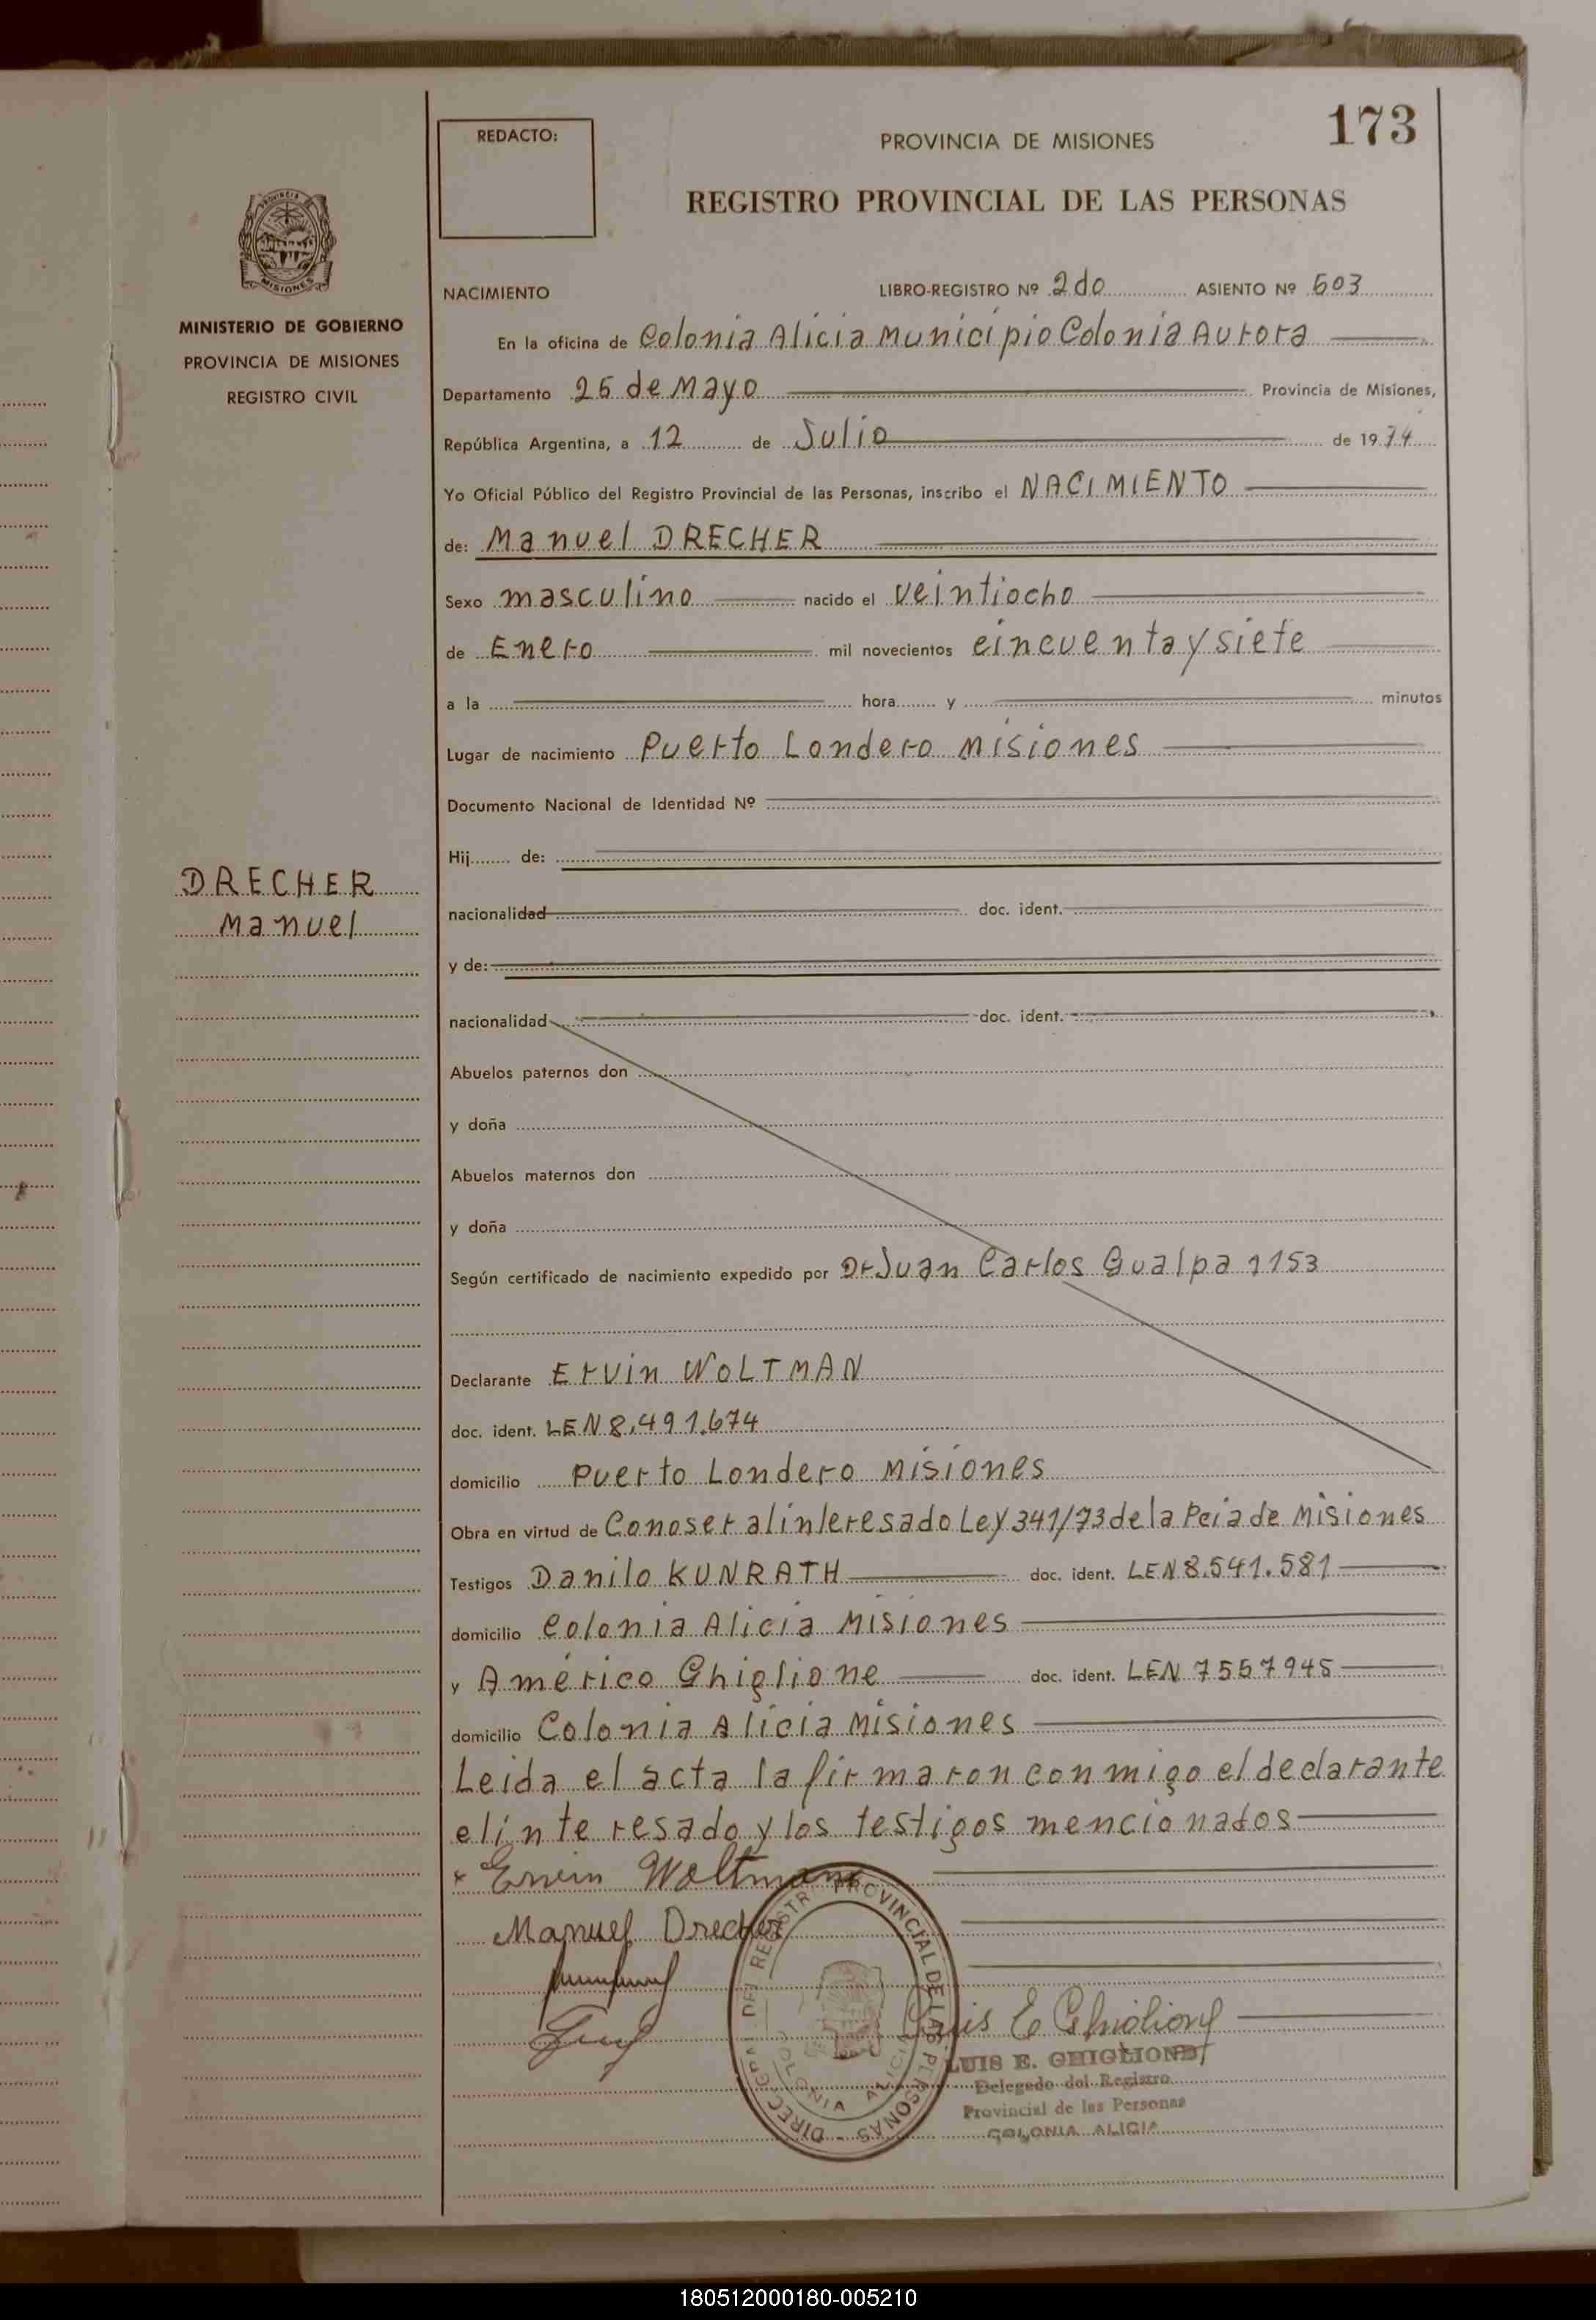 173
REDACTO:
PROVINCIA DE MISIONES
REGISTRO PROVINCIAL DE LAS PERSONAS
MISIONES
MINISTERIO DE GOBIERNO
PROVINCIA DE MISIONES
REGISTRO CIVIL
NACIMIENTO LIBRO-REGISTRO Nº 2do ASIENTO Nº 603
En la oficina de Colonia Alicia Municipio Colonia Aurora
Departamento 25 de Mayo Provincia de Misiones,
República Argentina, a 12 de Julio de 1974
Yo Oficial Público del Registro Provincial de las Personas, inscribo el NACIMIENTO
de: Manuel DRECHER
Sexo masculino nacido el veintiocho
de Enero mil novecientos cincuenta y siete
a la hora y minutos
Lugar de nacimiento Puerto Londero Misiones
Documento Nacional de Identidad Nº
Hij de:
DRECHER
Manuel
nacionalidad doc. ident.
y de:
nacionalidad doc. ident.
Abuelos paternos don
y doña
Abuelos maternos don
y doña
Según certificado de nacimiento expedido por Dr Juan Carlos Gualpa 1153
Declarante Ervin WOLTMAN
doc. ident. LEN 8.491.674
domicilio Puerto Londero Misiones
Obra en virtud de Conoser al interesado Ley 341/73 de la Pcia de Misiones
Testigos Danilo KUNRATH doc. ident. LEN 8.541.581
domicilio Colonia Alicia Misiones
y Américo Ghiglione doc. ident. LEN 7557945
domicilio Colonia Alicia Misiones
Leida el acta la firmaron conmigo el declarante
el interesado y los testigos mencionados
Ervin Woltmann
Manuel Drecher
DIRECC GRAL DEL REGISTR PROVINCIAL DE LAS PERSONAS
COLONIA ALICIA
Luis E Ghiglione
LUIS E. GHIGLIONE
Delegado del Registro
Provincial de las Personas
COLONIA ALICIA
180512000180-005210